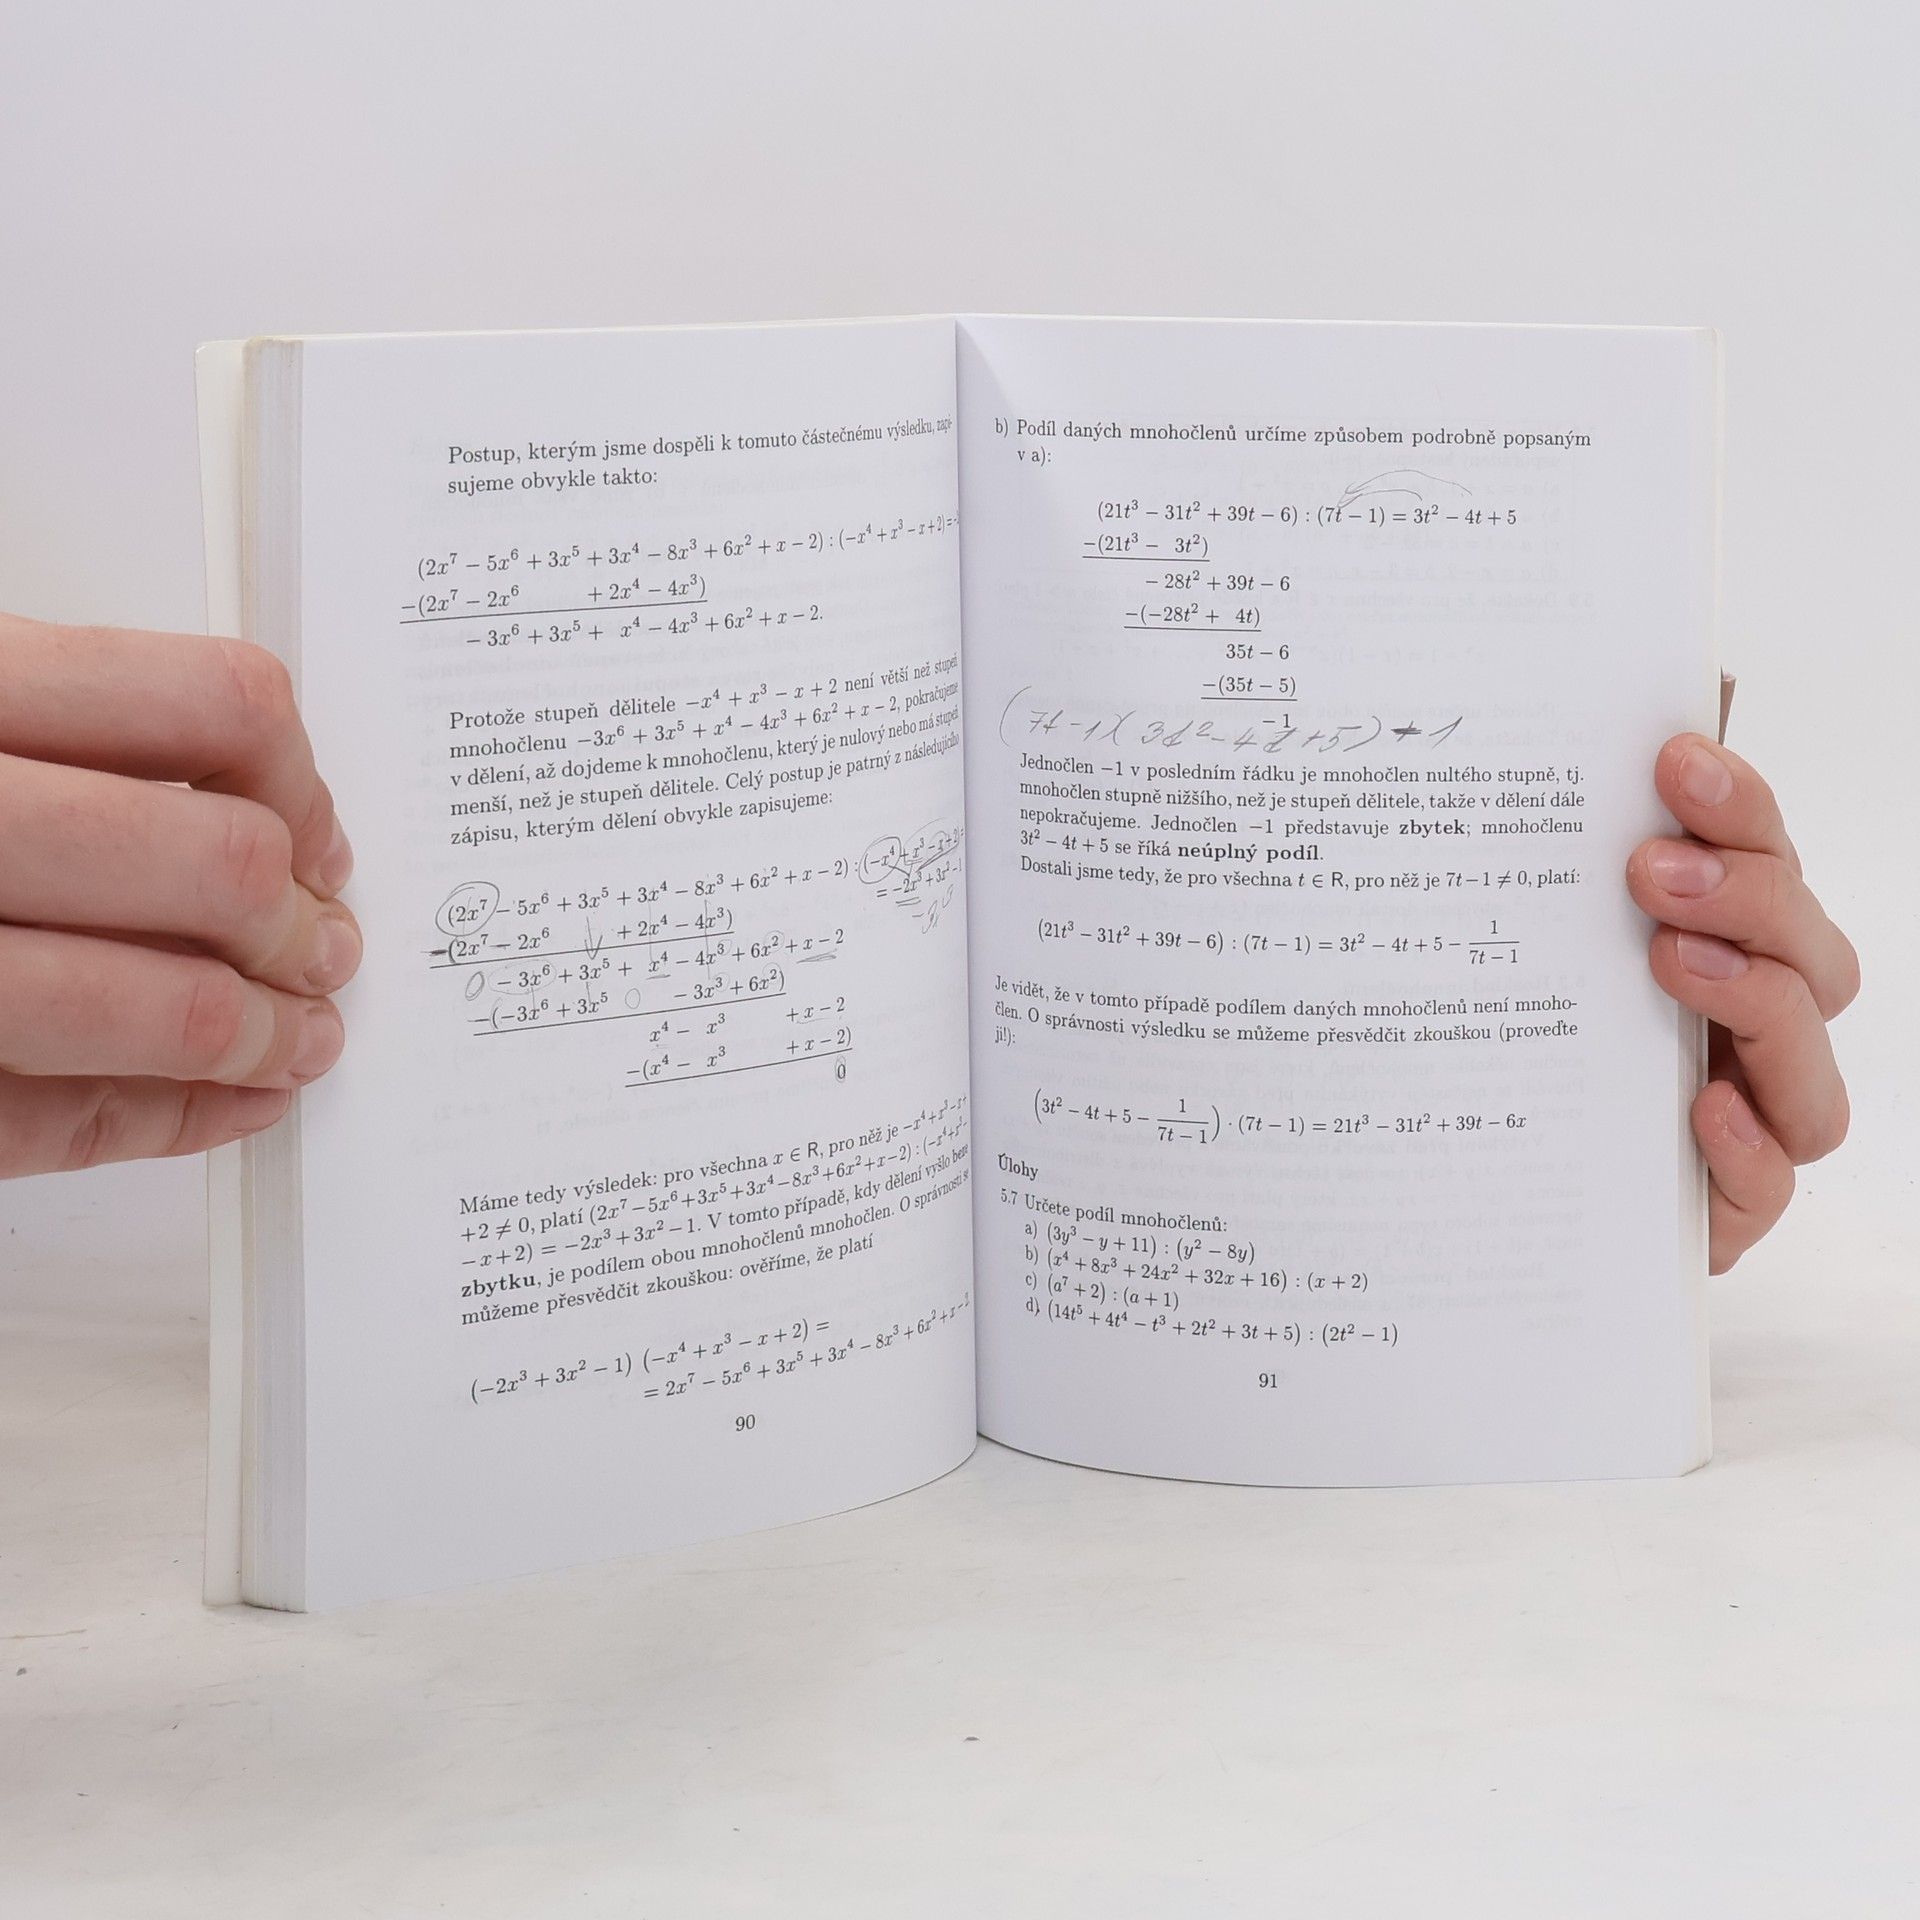 Postup, kterým jsme dospěli k tomuto částečnému výsledku, zapi-
sujeme obvykle takto:
(2x⁷ − 5x⁶ + 3x⁵ + 3x⁴ − 8x³ + 6x² + x − 2) : (−x⁴ + x³ − x + 2) =
−(2x⁷ − 2x⁶ + 2x⁴ − 4x³)
− 3x⁶ + 3x⁵ + x⁴ − 4x³ + 6x² + x − 2.
Protože stupeň dělitele −x⁴ + x³ − x + 2 není větší než stupeň
mnohočlenu −3x⁶ + 3x⁵ + x⁴ − 4x³ + 6x² + x − 2, pokračujeme
v dělení, až dojdeme k mnohočlenu, který je nulový nebo má stupeň
menší, než je stupeň dělitele. Celý postup je patrný z následujícího
zápisu, kterým dělení obvykle zapisujeme:
(2x⁷ − 5x⁶ + 3x⁵ + 3x⁴ − 8x³ + 6x² + x − 2) : (−x⁴ + x³ − x + 2) =
= −2x³ + 3x² − 1
−(2x⁷ − 2x⁶ + 2x⁴ − 4x³)
0 − 3x⁶ + 3x⁵ + x⁴ − 4x³ + 6x² + x − 2
−(−3x⁶ + 3x⁵ 0 − 3x³ + 6x²)
x⁴ − x³ + x − 2
−(x⁴ − x³ + x − 2)
0
Máme tedy výsledek: pro všechna x ∈ R, pro něž je −x⁴ + x³ − x +
+2 ≠ 0, platí (2x⁷ − 5x⁶ + 3x⁵ + 3x⁴ − 8x³ + 6x² + x − 2) : (−x⁴ + x³ −
− x + 2) = −2x³ + 3x² − 1. V tomto případě, kdy dělení vyšlo beze
zbytku, je podílem obou mnohočlenů mnohočlen. O správnosti se
můžeme přesvědčit zkouškou: ověříme, že platí
(−2x³ + 3x² − 1) (−x⁴ + x³ − x + 2) =
= 2x⁷ − 5x⁶ + 3x⁵ + 3x⁴ − 8x³ + 6x² + x − 2
90
b) Podíl daných mnohočlenů určíme způsobem podrobně popsaným
v a):
(21t³ − 31t² + 39t − 6) : (7t − 1) = 3t² − 4t + 5
−(21t³ − 3t²)
− 28t² + 39t − 6
−(−28t² + 4t)
35t − 6
−(35t − 5)
−1
(7t − 1)(3t² − 4t + 5) − 1
Jednočlen −1 v posledním řádku je mnohočlen nultého stupně, tj.
mnohočlen stupně nižšího, než je stupeň dělitele, takže v dělení dále
nepokračujeme. Jednočlen −1 představuje zbytek; mnohočlenu
3t² − 4t + 5 se říká neúplný podíl.
Dostali jsme tedy, že pro všechna t ∈ R, pro něž je 7t − 1 ≠ 0, platí:
(21t³ − 31t² + 39t − 6) : (7t − 1) = 3t² − 4t + 5 − 1/(7t − 1)
Je vidět, že v tomto případě podílem daných mnohočlenů není mnoho-
člen. O správnosti výsledku se můžeme přesvědčit zkouškou (proveďte
ji!):
(3t² − 4t + 5 − 1/(7t − 1)) · (7t − 1) = 21t³ − 31t² + 39t − 6x
Úlohy
5.7 Určete podíl mnohočlenů:
a) (3y³ − y + 11) : (y² − 8y)
b) (x⁴ + 8x³ + 24x² + 32x + 16) : (x + 2)
c) (a⁷ + 2) : (a + 1)
d) (14t⁵ + 4t⁴ − t³ + 2t² + 3t + 5) : (2t² − 1)
91